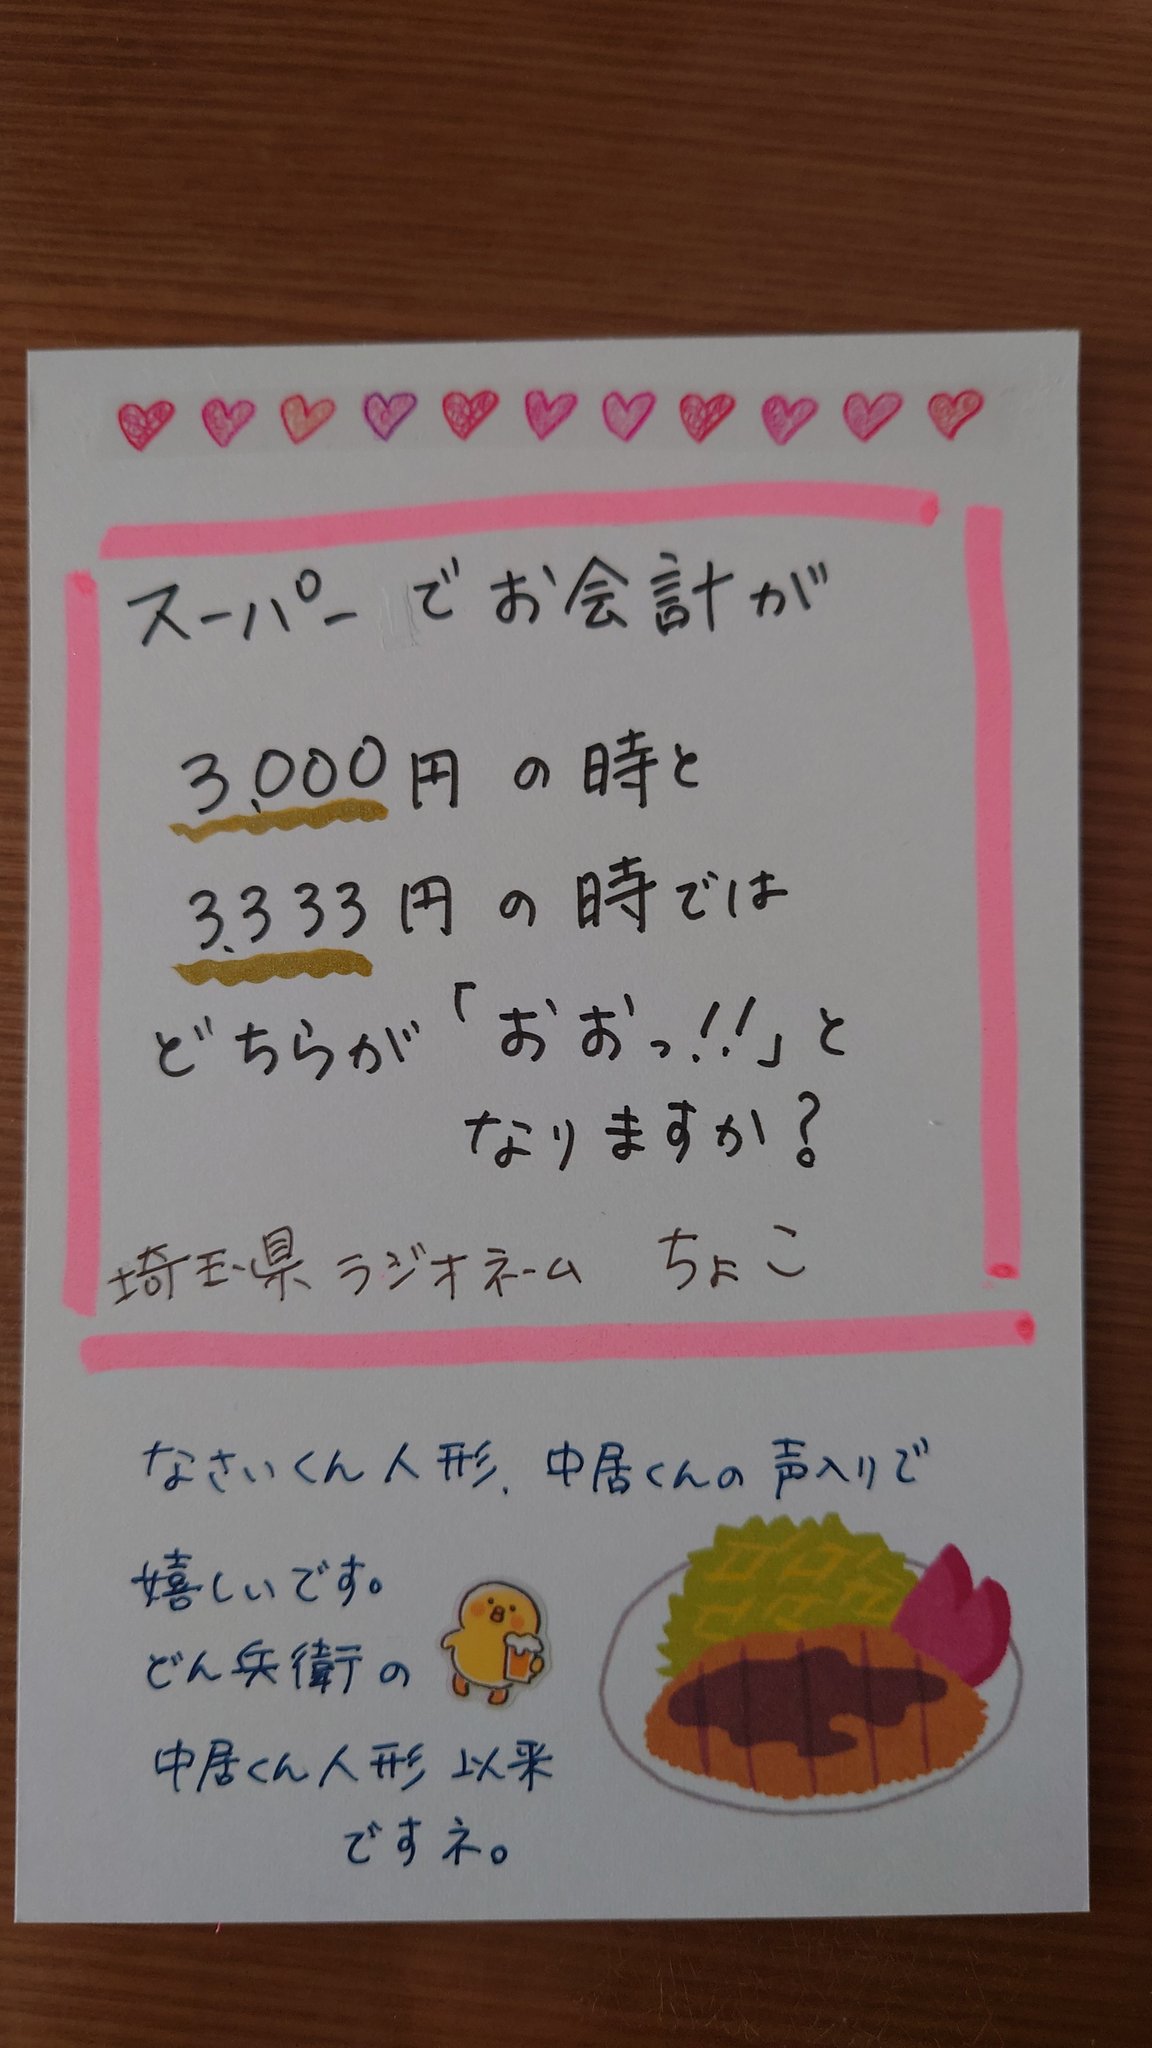 スーパーでお会計が
3,000円の時と
3,333円の時では
どちらが「おおっ!!」と
なりますか?
埼玉県 ラジオネーム ちょこ
なさいくん人形、中居くんの声入りで
嬉しいです。
どん兵衛の
中居くん人形以来
ですネ。